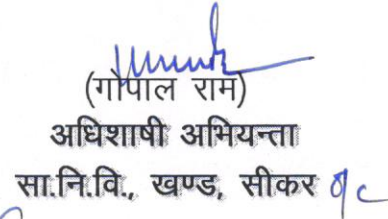 (गोपाल राम)
अधिशाषी अभियन्ता
सा.नि.वि., खण्ड, सीकर